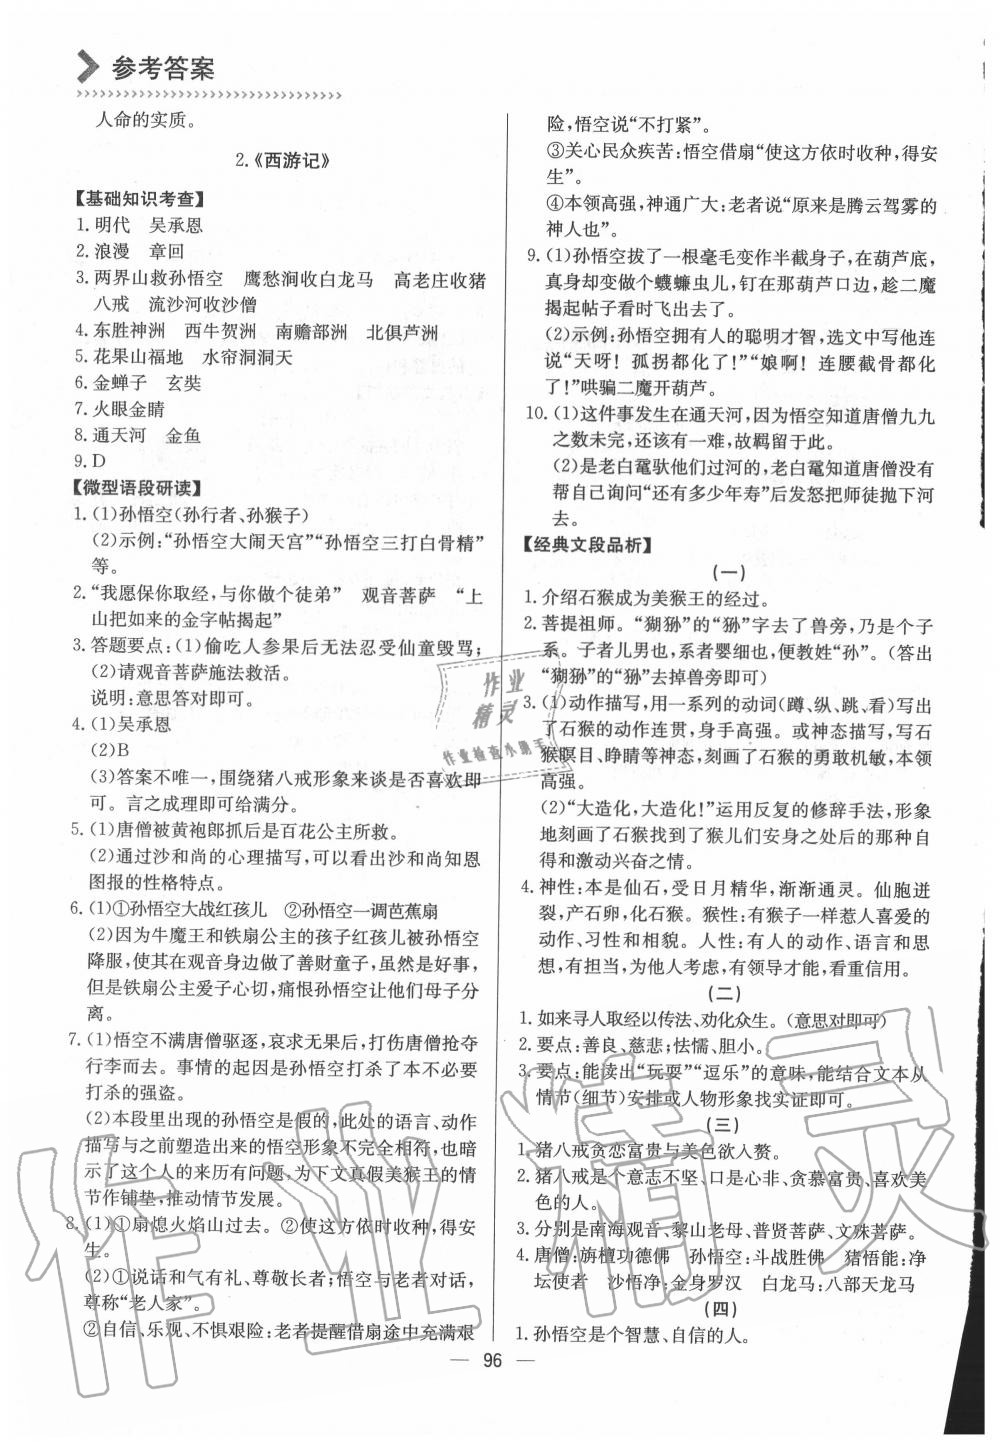 参考答案
人命的实质。
2.《西游记》
【基础知识考查】
1. 明代　吴承恩
2. 浪漫　章回
3. 两界山救孙悟空　鹰愁涧收白龙马　高老庄收猪
八戒　流沙河收沙僧
4. 东胜神洲　西牛贺洲　南赡部洲　北俱芦洲
5. 花果山福地　水帘洞洞天
6. 金蝉子　玄奘
7. 火眼金睛
8. 通天河　金鱼
9. D
【微型语段研读】
1. (1)孙悟空(孙行者、孙猴子)
(2)示例:“孙悟空大闹天宫”“孙悟空三打白骨精”
等。
2. “我愿保你取经,与你做个徒弟”　观音菩萨　“上
山把如来的金字帖揭起”
3. 答题要点:(1)偷吃人参果后无法忍受仙童毁骂;
(2)请观音菩萨施法救活。
说明:意思答对即可。
4. (1)吴承恩
(2)B
(3)答案不唯一,围绕猪八戒形象来谈是否喜欢即
可。言之成理即可给满分。
5. (1)唐僧被黄袍郎抓后是百花公主所救。
(2)通过沙和尚的心理描写,可以看出沙和尚知恩
图报的性格特点。
6. (1)①孙悟空大战红孩儿　②孙悟空一调芭蕉扇
(2)因为牛魔王和铁扇公主的孩子红孩儿被孙悟空
降服,使其在观音身边做了善财童子,虽然是好事,
但是铁扇公主爱子心切,痛恨孙悟空让他们母子分
离。
7. (1)悟空不满唐僧驱逐,哀求无果后,打伤唐僧抢夺
行李而去。事情的起因是孙悟空打杀了本不必要
打杀的强盗。
(2)本段里出现的孙悟空是假的,此处的语言、动作
描写与之前塑造出来的悟空形象不完全相符,也暗
示了这个人的来历有问题,为下文真假美猴王的情
节作铺垫,推动情节发展。
8. (1)①扇熄火焰山过去。②使这方依时收种,得安
生。
(2)①说话和气有礼、尊敬长者;悟空与老者对话,
尊称“老人家”。
②自信、乐观、不惧艰险:老者提醒借扇途中充满艰
险,悟空说“不打紧”。
③关心民众疾苦:悟空借扇“使这方依时收种,得安
生”。
④本领高强,神通广大:老者说“原来是腾云驾雾的
神人也”。
9. (1)孙悟空拔了一根毫毛变作半截身子,在葫芦底,
真身却变做个蟭蟟虫儿,钉在那葫芦口边,趁二魔
揭起帖子看时飞出去了。
(2)示例:孙悟空拥有人的聪明才智,选文中写他连
说“天呀！孤拐都化了！”“娘啊！连腰截骨都化
了！”哄骗二魔开葫芦。
10. (1)这件事发生在通天河,因为悟空知道唐僧九九
之数未完,还该有一难,故羁留于此。
(2)是老白鼋驮他们过河的,老白鼋知道唐僧没有
帮自己询问“还有多少年寿”后发怒把师徒抛下河
去。
【经典文段品析】
(一)
1. 介绍石猴成为美猴王的经过。
2. 菩提祖师。“猢狲”的“狲”字去了兽旁,乃是个子
系。子者儿男也,系者婴细也,便教姓“孙”。(答出
“猢狲”的“狲”去掉兽旁即可)
3. (1)动作描写,用一系列的动词(蹲、纵、跳、看)写出
了石猴的动作连贯,身手高强。或神态描写,写石
猴瞑目、睁睛等神态,刻画了石猴的勇敢机敏,本领
高强。
(2)“大造化,大造化!”运用反复的修辞手法,形象
地刻画了石猴找到了猴儿们安身之处后的那种自
得和激动兴奋之情。
4. 神性:本是仙石,受日月精华,渐渐通灵。仙胞迸
裂,产石卵,化石猴。猴性:有猴子一样惹人喜爱的
动作、习性和相貌。人性:有人的动作、语言和思
想,有担当,为他人考虑,有领导才能,看重信用。
(二)
1. 如来寻人取经以传法、劝化众生。(意思对即可)
2. 要点:善良、慈悲;怯懦、胆小。
3. 要点:能读出“玩耍”“逗乐”的意味,能结合文本从
情节(细节)安排或人物形象找实证即可。
(三)
1. 猪八戒贪恋富贵与美色欲入赘。
2. 猪八戒是个意志不坚、口是心非、贪慕富贵、喜欢美
色的人。
3. 分别是南海观音、黎山老母、普贤菩萨、文殊菩萨。
4. 唐僧:旃檀功德佛　孙悟空:斗战胜佛　猪悟能:净
坛使者　沙悟净:金身罗汉　白龙马:八部天龙马
(四)
1. 孙悟空是个智慧、自信的人。
— 96 —
作业
精灵
作业检查小助手
作业精灵